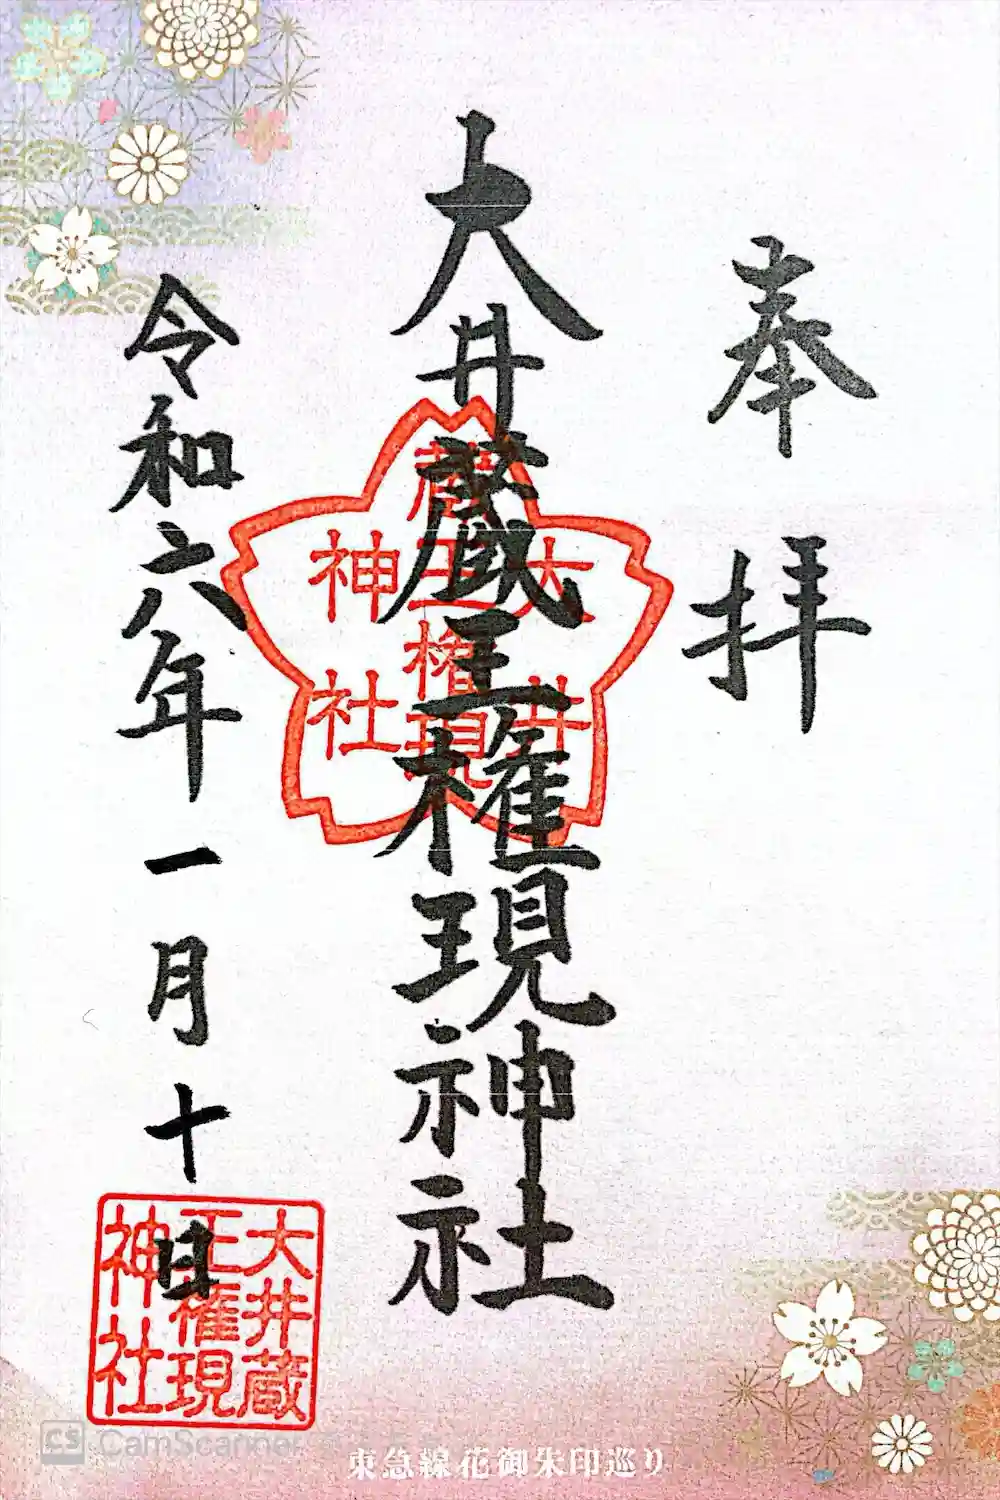 奉拝
大井蔵王権現神社
令和六年一月十日
大井
蔵王権現
神社
大井蔵
王権現
神社
CS CamScanner
東急線花御朱印巡り